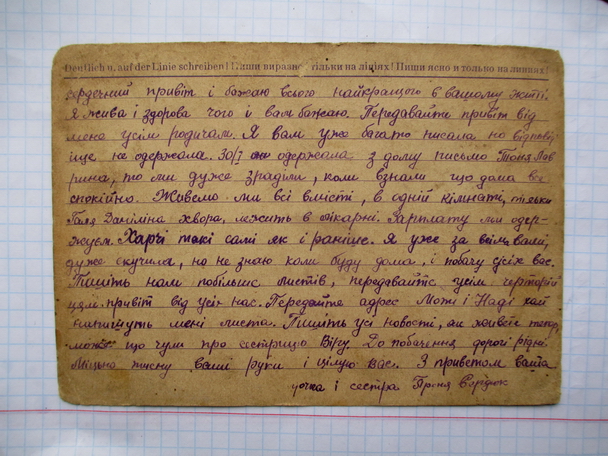 Deutlich u. auf der Linie schreiben! Пиши виразно тільки на лініях! Пиши ясно и только на линиях!
сердечний привіт і бажаю всього найкращого в вашому житті.
Я жива і здорова чого й вам бажаю. Передавайте привіт від
мене усім родичам. Я вам уже багато писала но відповіді
іще не одержала. 30/7 одержала з дому письмо Тоня Лав
рина, то ми дуже зраділи, коли взнали що дома все
спокійно. Живемо ми всі вмісті, в одній кімнаті, тільки
Галя Даніліна хвора, лежить в лікарні. Зарплату ми одер-
жуєм. Харчі такі самі як і раніше. Я уже за всіма вами
дуже скучила, но не знаю коли буду дома, і побачу усіх вас.
Пишіть нам побільше листів, передавайте усім
цям привіт від усіх нас. Передайте адрес Моті і Наді хай
напишуть мені листа. Пишіть усі новості, як живете тепер,
може що чули про сестрицю Віру. До побачення дорогі рідні.
Міцно тисну ваші руки і цілую вас. З приветом ваша
дочка і сестра Проня